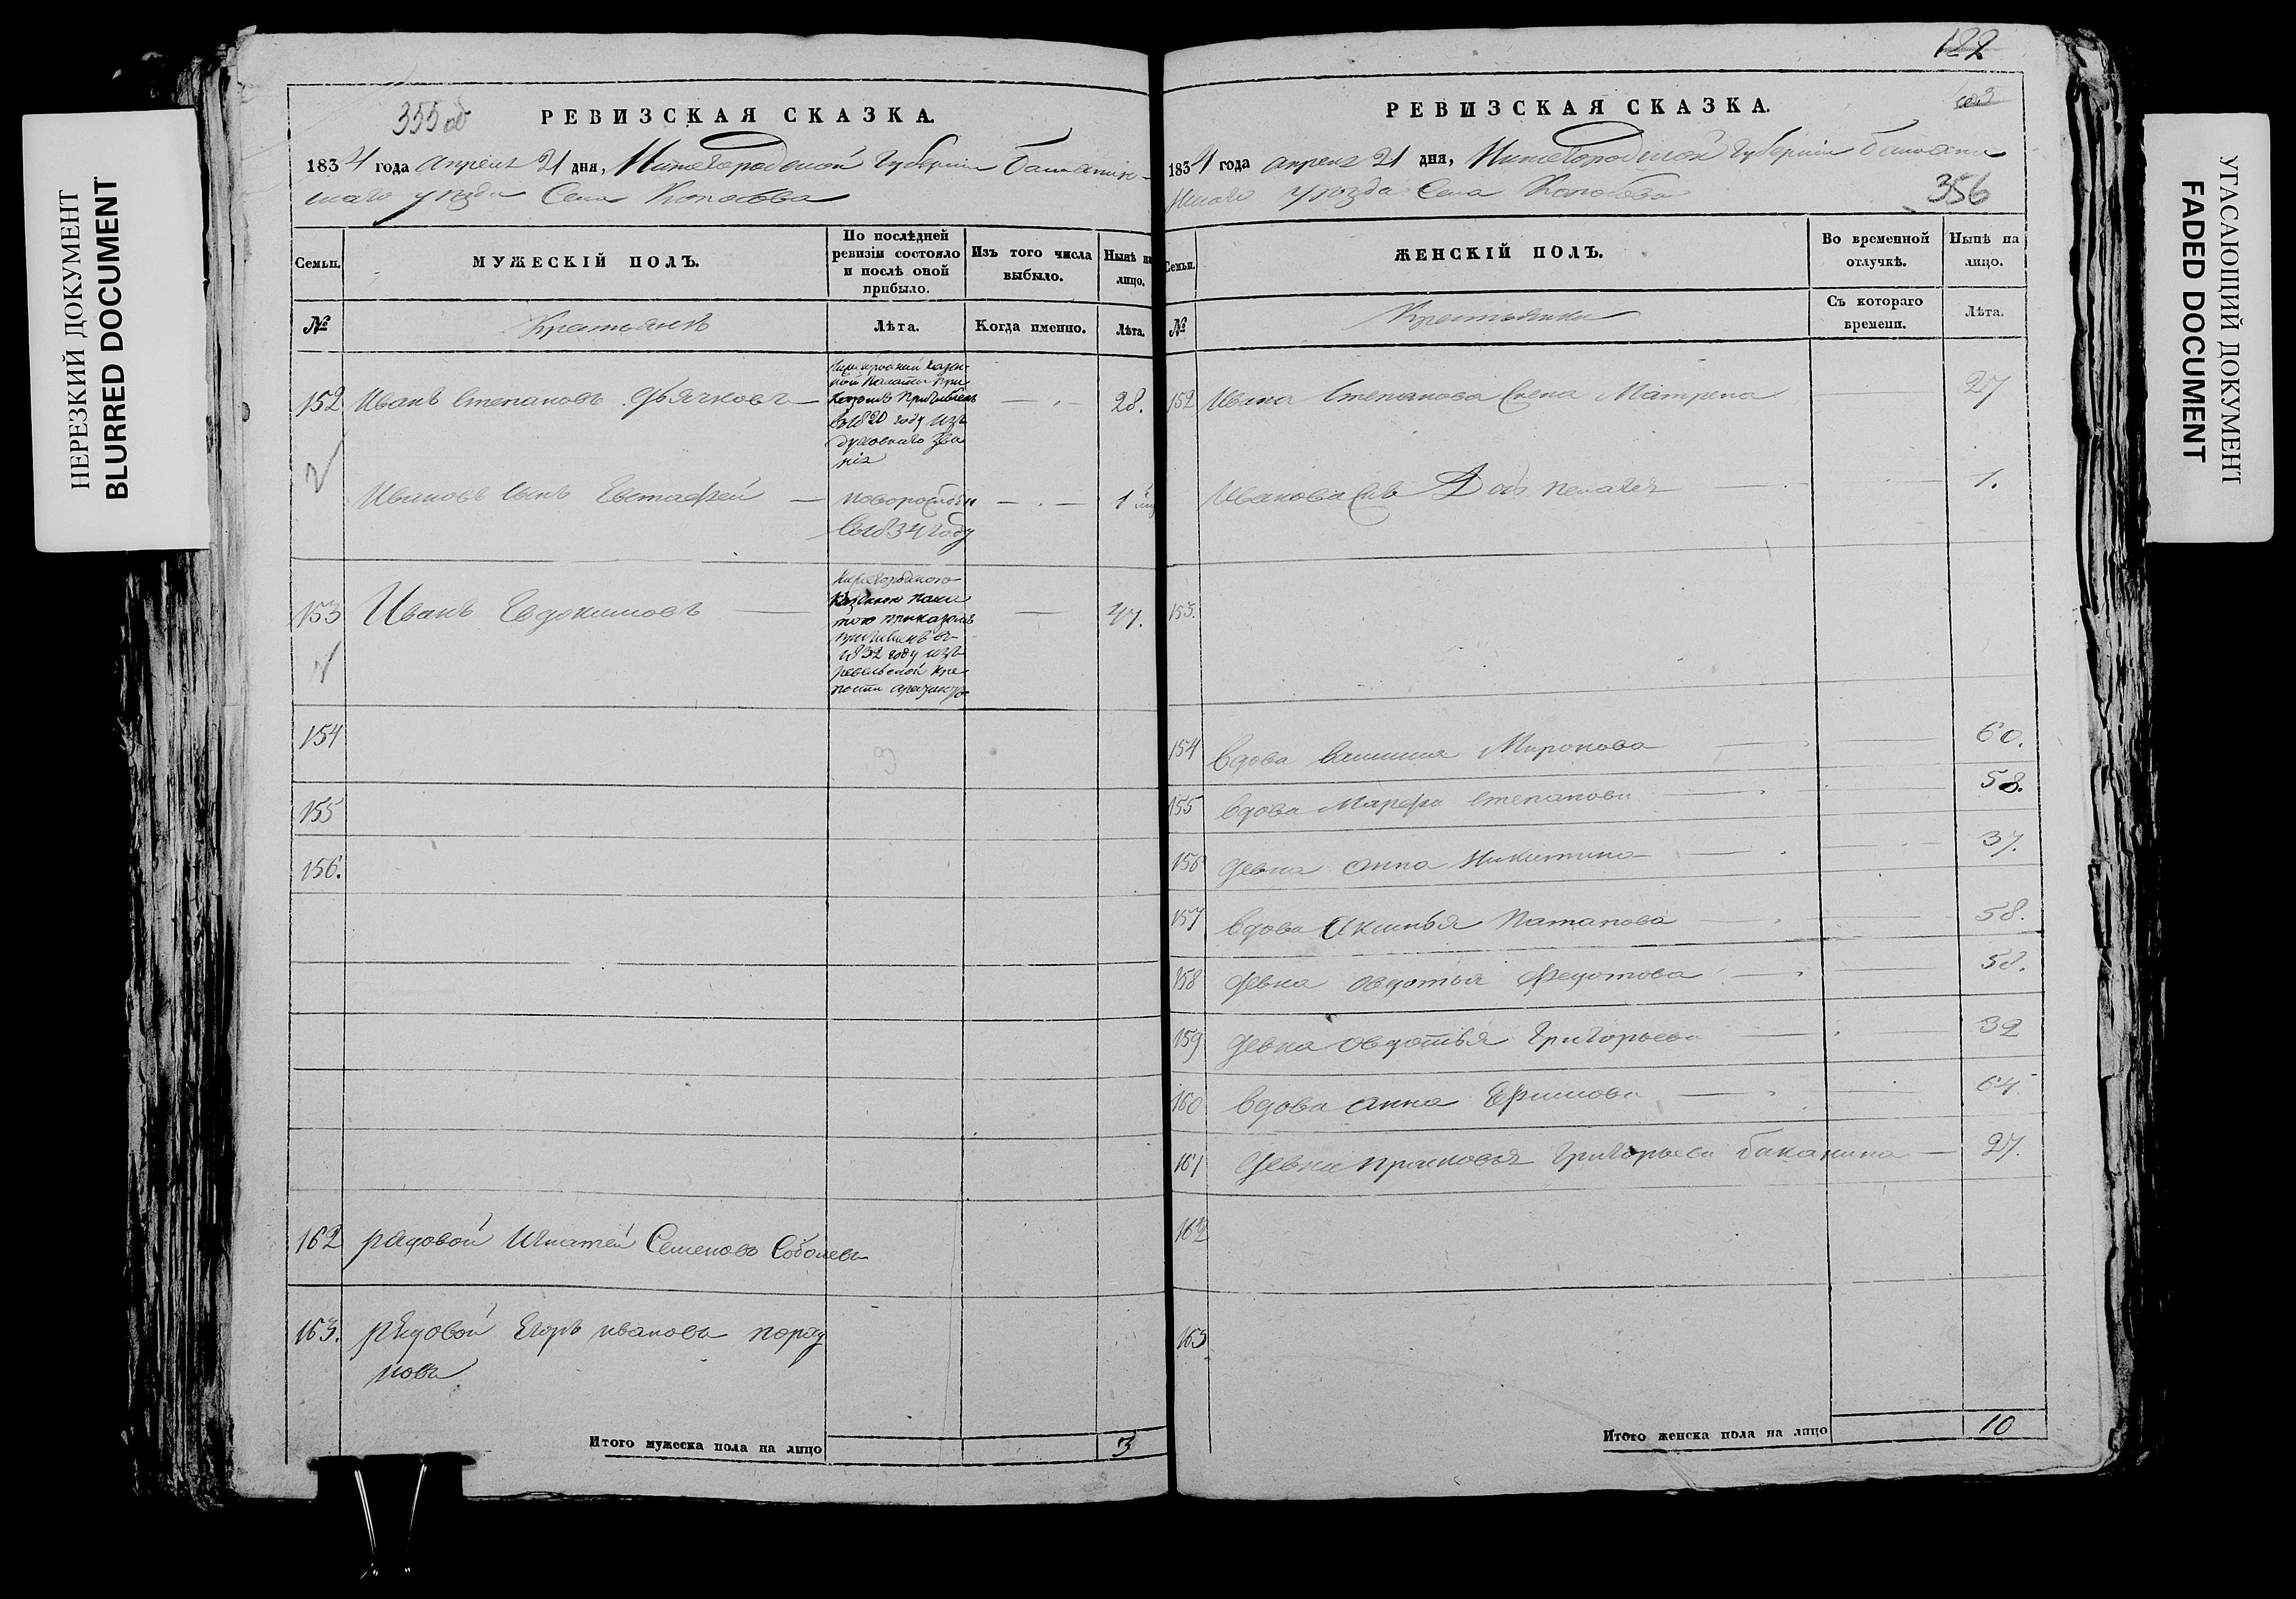 НЕРЕЗКИЙ ДОКУМЕНТ
BLURRED DOCUMENT
355 об
РЕВИЗСКАЯ СКАЗКА.
1834 года апреля 21 дня, Нижегородской Губернии Балахнин-
скаго уезда Села Копосова
Семьи.
МУЖЕСКІЙ ПОЛЪ.
По послѣдней ревизіи состояло и послѣ оной прибыло.
Изъ того числа выбыло.
Нынѣ на лицо.
№
Крестьянѣ
Лѣта.
Когда именно.
Лѣта.
152 Иванъ Степановъ Дьячковъ
казен-
ной Палаты при
казомъ Причисленъ
въ 1820 году изъ
духовнаго зва
нія
28.
Ивановъ сынъ Евстафей
новорожден
въ 1834 году
1
153 Иванъ Евдокимовъ
Нижегородского
Казенною пала
тою приказомъ
причисленъ въ
1832 году изъ
крѣ
пости
47.
154
155
156.
162 рядовой Игнатей Семеновъ Соболевъ
163. рядовой Егоръ Ивановъ
новъ
Итого мужеска пола на лицо
3
122
РЕВИЗСКАЯ СКАЗКА.
1834 года апреля 21 дня, Нижегородской Губернии Балахни
нскаго уезда Села Копосова
356
Семьи.
ЖЕНСКІЙ ПОЛЪ.
Во временной отлучкѣ.
Нынѣ на лицо.
№
Крестьянки
Съ котораго времени.
Лѣта.
152 Ивана Степанова Жена Матрена 27
Иванова Дочь Пелагея 1.
153.
154 Вдова Мироновa 60.
155 Вдова Марфа Степанова 58.
156 Девка Анна Никитина 37.
157 Вдова Аксинья Патапова 58.
158 Девка Овдотья Федотова 58.
159 Девка Овдотья Григорьева 32
160 Вдова Анна Ефимова 64.
161 Девка Прасковья Григорьева Баканина 27.
162
163
Итого женска пола на лицо
10
УГАСАЮЩИЙ ДОКУМЕНТ
FADED DOCUMENT